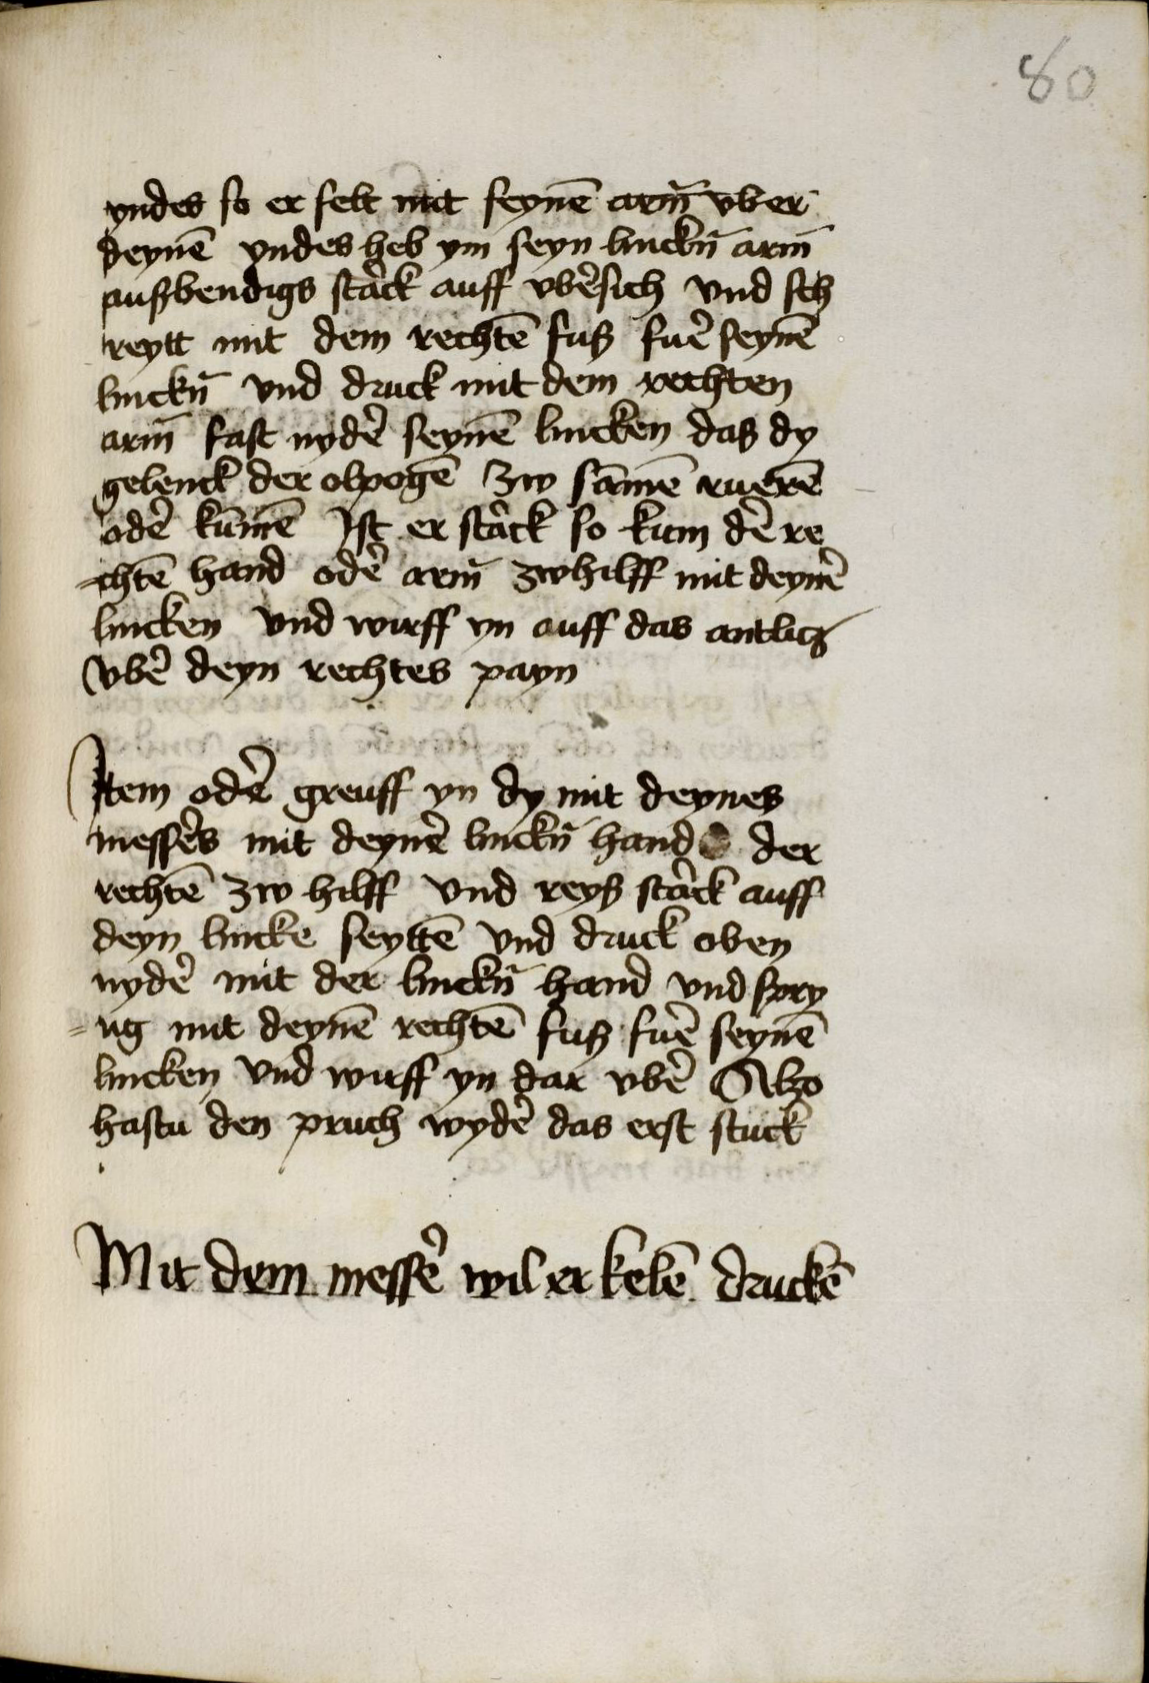 80
yndes so er felt mit seynē arm̄ vber
deynē yndes heb ym seyn linckn̄ arm̄
außbendigs starck auff vbersich vnd sch
reytt mit dem rechtē fuß fuer seynē
linckn̄ vnd druck mit dem rechten
arm̄ fast nyder seynē lincken das dy
gelenck der olpogē zw sāmē ruerē
oder kūmē Ist er starck so kum der re
-chtē hand oder arm̄ zw hilff mit deyner
lincken vnd wurff yn auff das antlicz
vber deyn rechtes payn
Item oder greuff yn dy mit deynes
messers mit deyner linckn̄ hand der
rechtē zw hilff vnd reyß starck auff
deyn lincke seyttē vnd druck oben
nyder mit der linckn̄ hand vnd spry
=ng mit deynē rechtē fuß fuer seynē
lincken vnd wirff yn dar vber Alzo
hastu den pruch wyder das erst stuck
Mit dem messer wil er kelē druckē